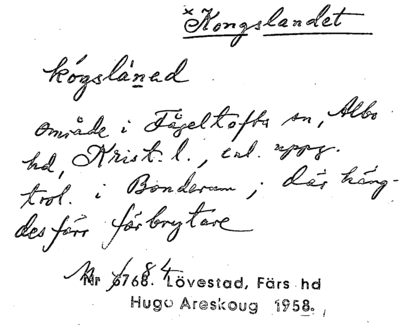 × Kongslandet
kógslánad
område i Fågeltofta sn, Albo
hd, Krist. l., enl. uppg.
trol. i Bonderum; där häng-
des förr förbrytare
Nr 6768. Lövestad, Färs hd
Hugo Areskoug 1958.